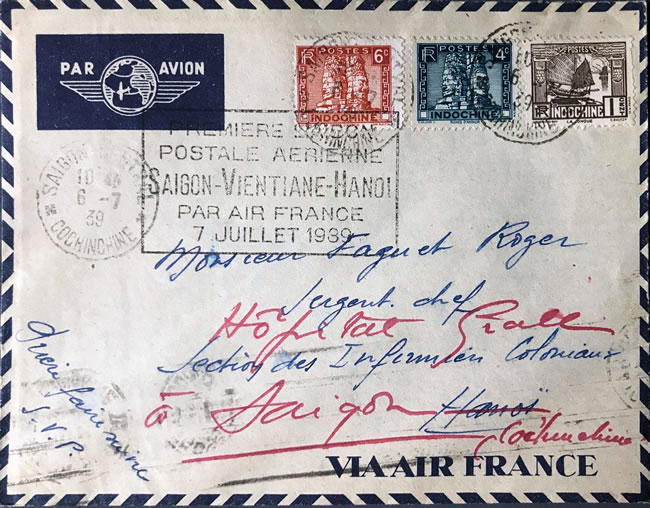 PAR AVION
RF POSTES 6c
INDOCHINE
RF POSTES 4c
INDOCHINE
POSTES
RF 1 c
INDOCHINE
LA JONQUE
PREMIERE
POSTALE AERIENNE
SAIGON-VIENTIANE-HANOI
PAR AIR FRANCE
7 JUILLET 1939
SAIGON
10
6 -7
39
COCHINCHINE
Monsieur Faguet Roger
Sergent chef
Hôpital Grall
Section des Infirmiers Coloniaux
à Saigon Hanoï
Cochinchine
Prière faire suivre
S.V.P.
VIA AIR FRANCE